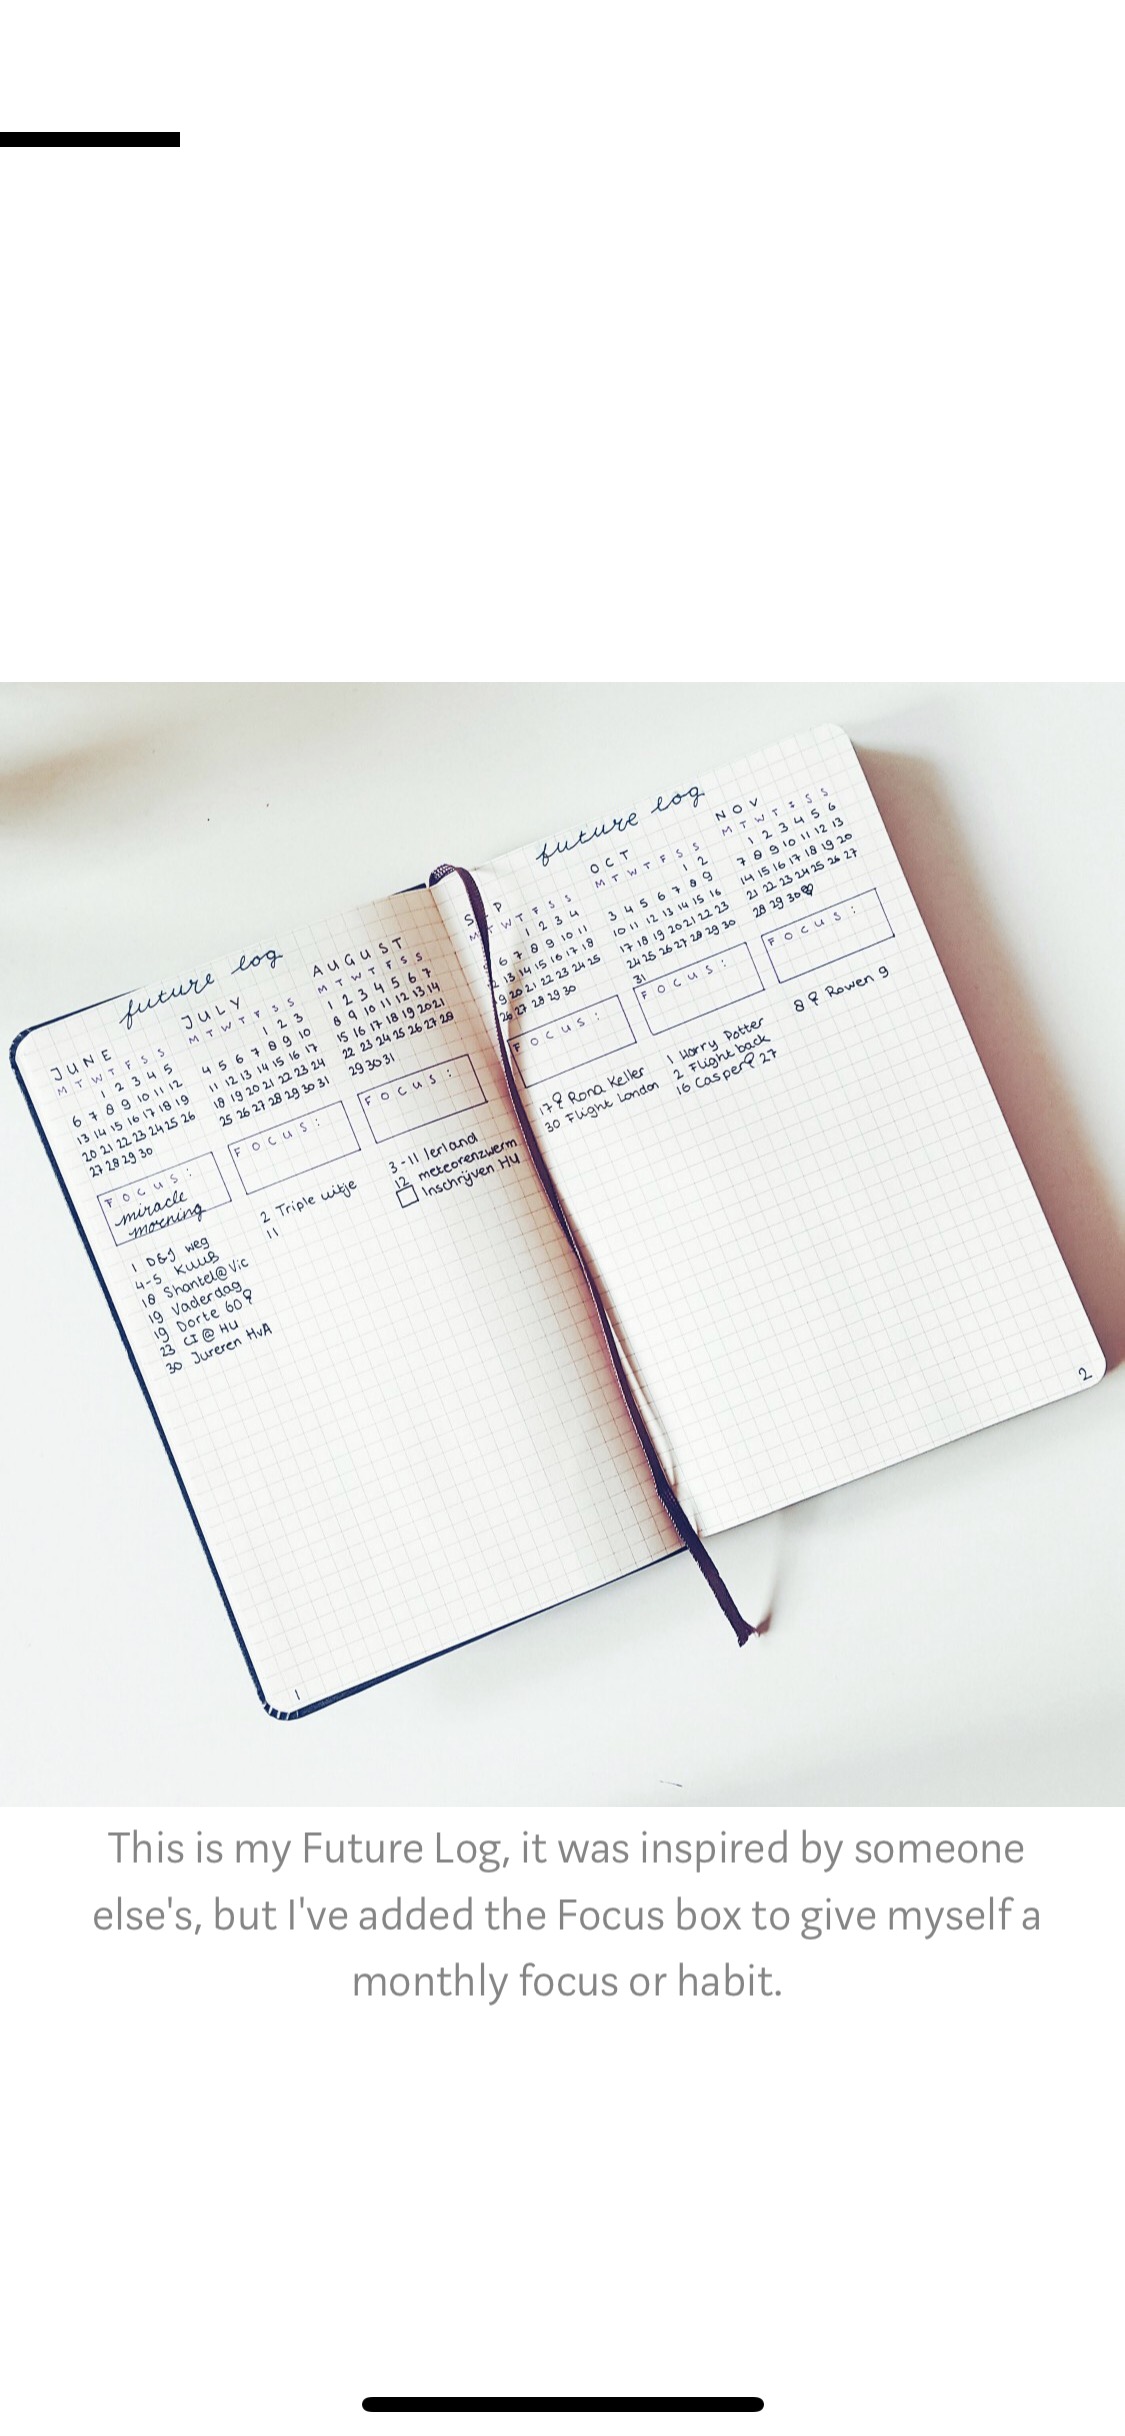 future log
JUNE
M T W T F S S
1 2 3 4 5
6 7 8 9 10 11 12
13 14 15 16 17 18 19
20 21 22 23 24 25 26
27 28 29 30
FOCUS:
miracle
morning
1 D&J weg
4-5 KuuB
18 Shantel@Vic
19 Vaderdag
19 Dorte 60
23 CI @ HU
30 Jureren HvA
JULY
M T W T F S S
1 2 3
4 5 6 7 8 9 10
11 12 13 14 15 16 17
18 19 20 21 22 23 24
25 26 27 28 29 30 31
FOCUS:
2 Triple uitje
11
AUGUST
M T W T F S S
1 2 3 4 5 6 7
8 9 10 11 12 13 14
15 16 17 18 19 20 21
22 23 24 25 26 27 28
29 30 31
FOCUS:
3-11 Ierland
12 meteorenzwerm
Inschrijven HU
1
future log
S P
M T W T F S S
1 2 3 4
6 7 8 9 10 11
13 14 15 16 17 18
19 20 21 22 23 24 25
26 27 28 29 30
FOCUS:
17 Rona Keller
30 Flight London
OCT
M T W T F S S
1 2
3 4 5 6 7 8 9
10 11 12 13 14 15 16
17 18 19 20 21 22 23
24 25 26 27 28 29 30
31
FOCUS:
1 Harry Potter
2 Flight back
16 Casper 27
NOV
M T W T F S S
1 2 3 4 5 6
7 8 9 10 11 12 13
14 15 16 17 18 19 20
21 22 23 24 25 26 27
28 29 30
FOCUS:
8 Rowen 9
2
This is my Future Log, it was inspired by someone
else's, but I've added the Focus box to give myself a
monthly focus or habit.